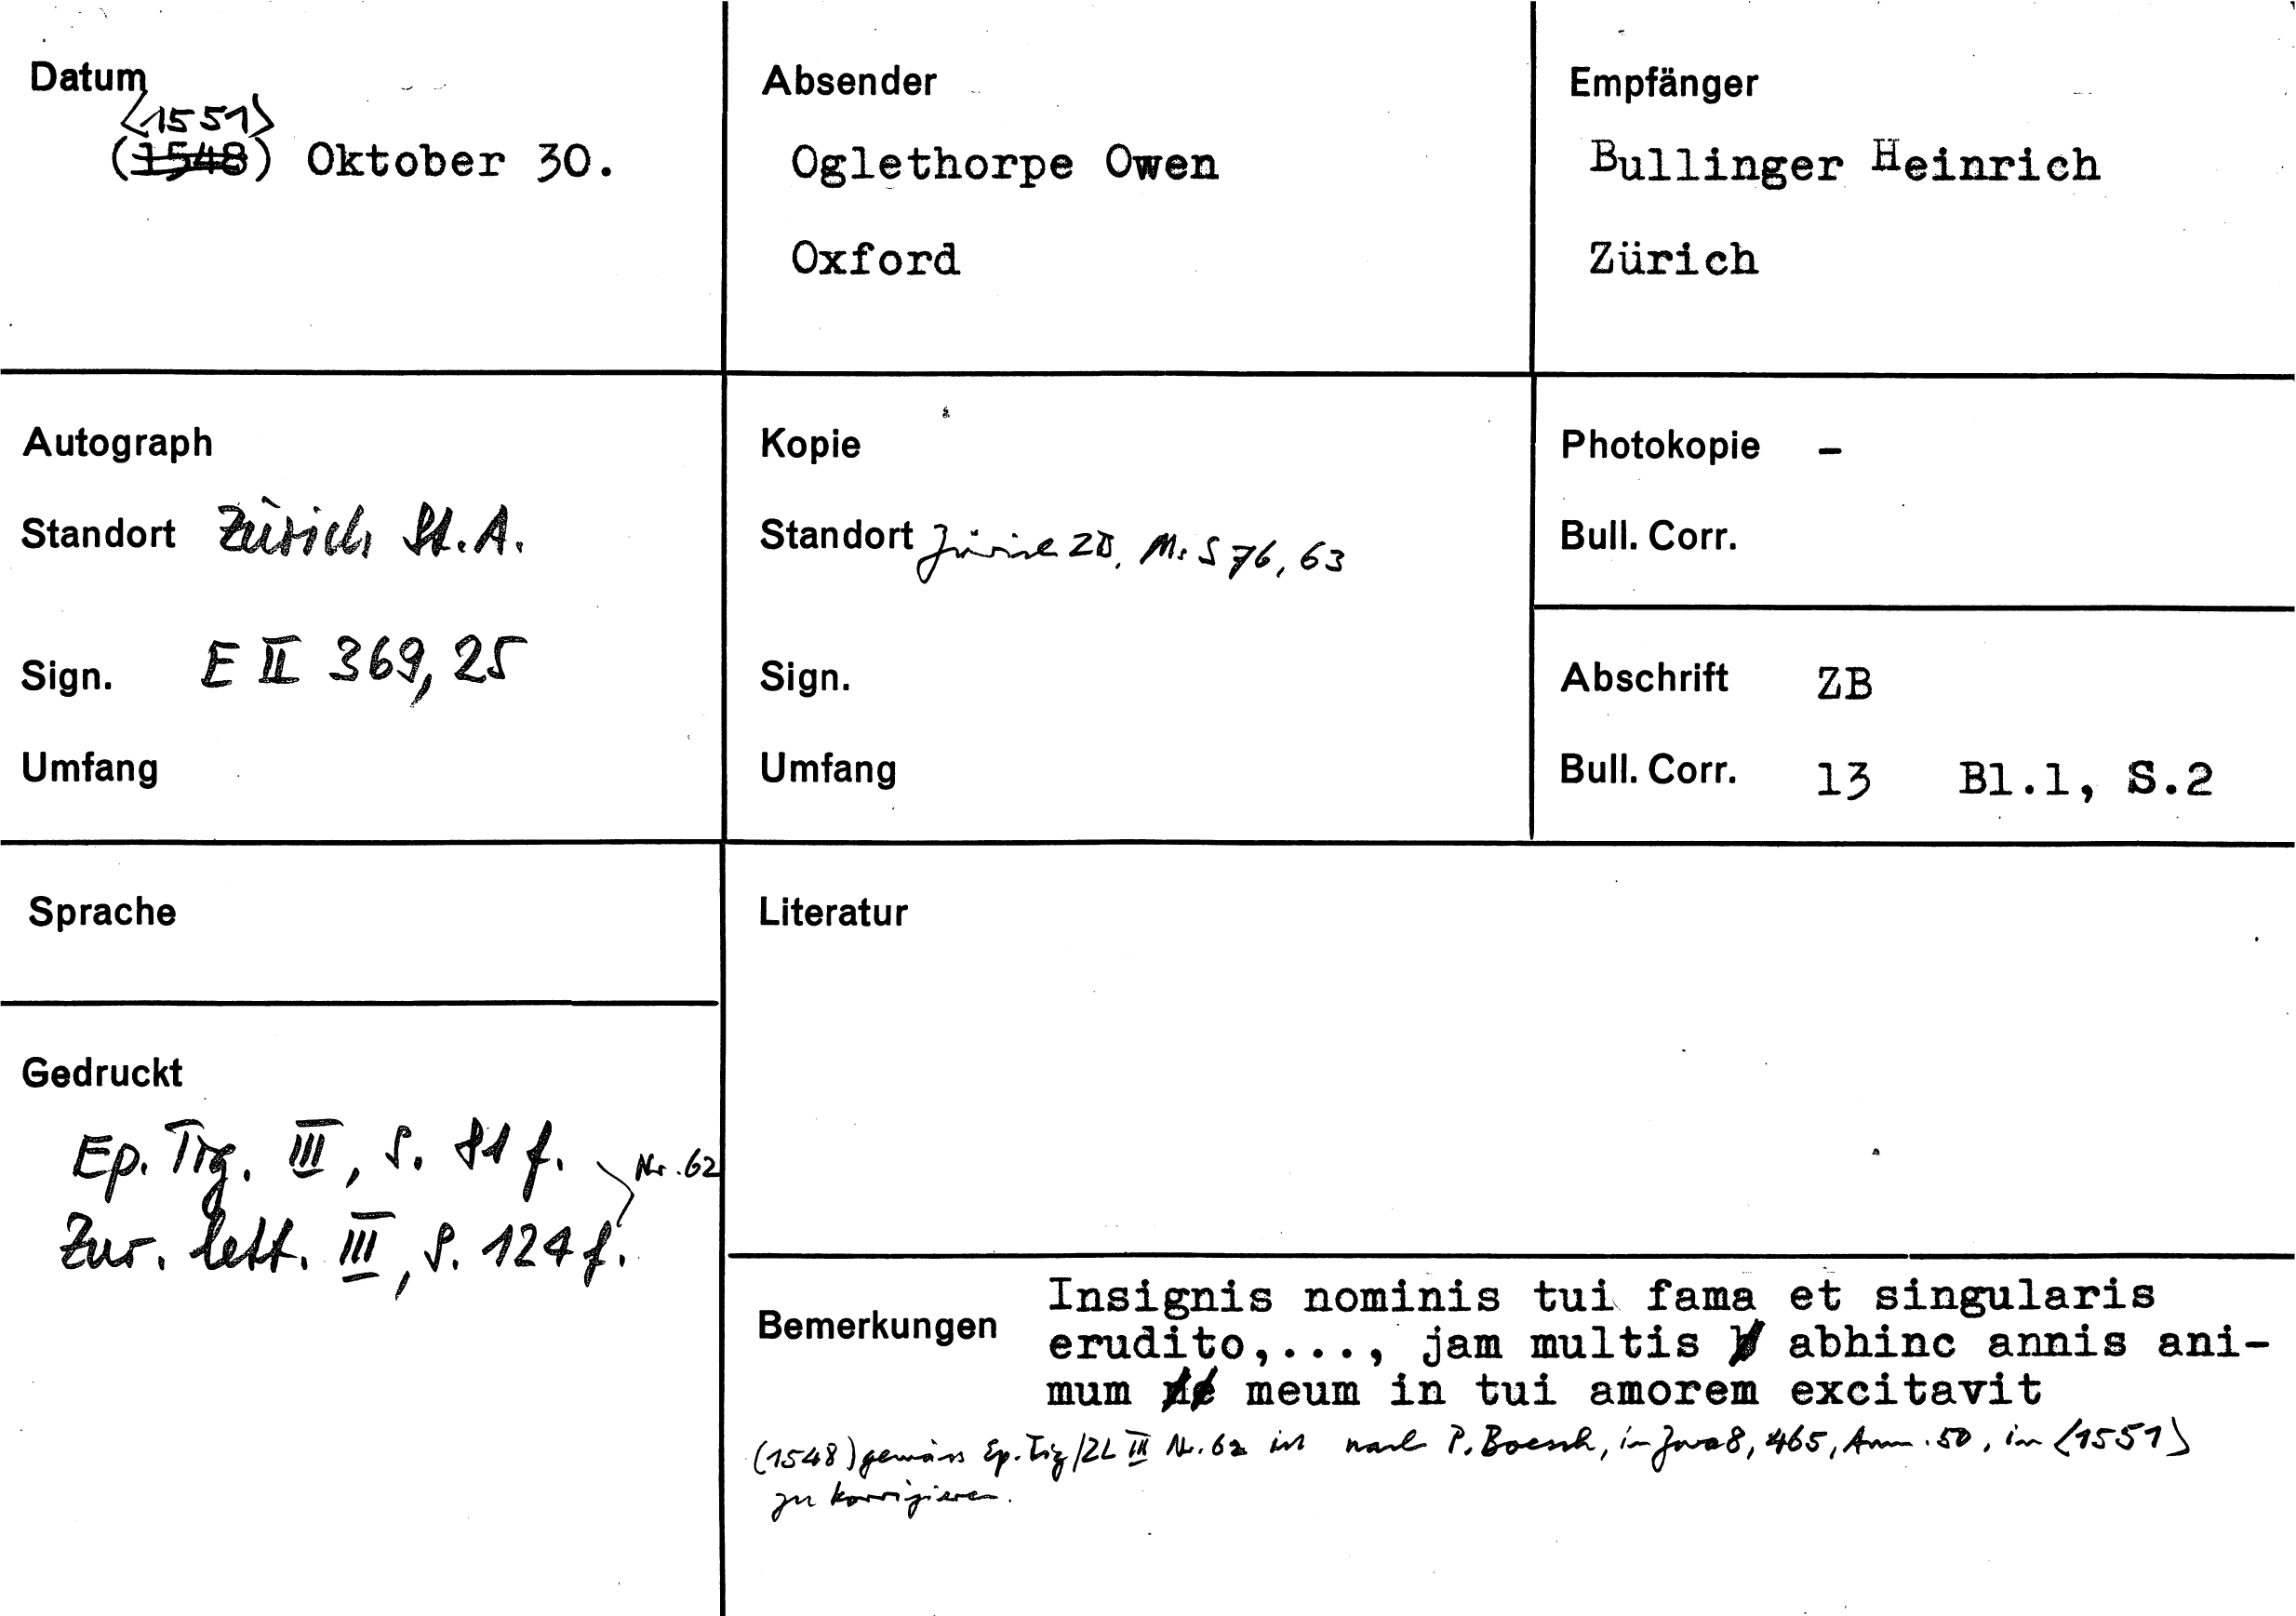 Datum
<1551>
(1548) Oktober 30.
Absender
Oglethorpe Owen
Oxford
Empfänger
Bullinger Heinrich
Zürich
Autograph
Standort Zürich St.A.
Sign. E II 369, 25
Umfang
Kopie
Standort Zürich ZB, Ms S 76, 63
Sign.
Umfang
Photokopie -
Bull. Corr.
Abschrift ZB
Bull. Corr. 13 Bl.1, S.2
Sprache
Gedruckt
Ep. Tig. III, S. 81 f.
Nr. 62
Zur. lett. III, S. 124 f.
Literatur
Bemerkungen
Insignis nominis tui fama et singularis
erudito,..., jam multis abhinc annis ani-
mum meum in tui amorem excitavit
(1548) gemäss Ep. Tig/ZL III Nr. 62 ist nach P. Boesch, in Zwa 8, 465, Anm. 50, in <1551>
zu korrigieren.